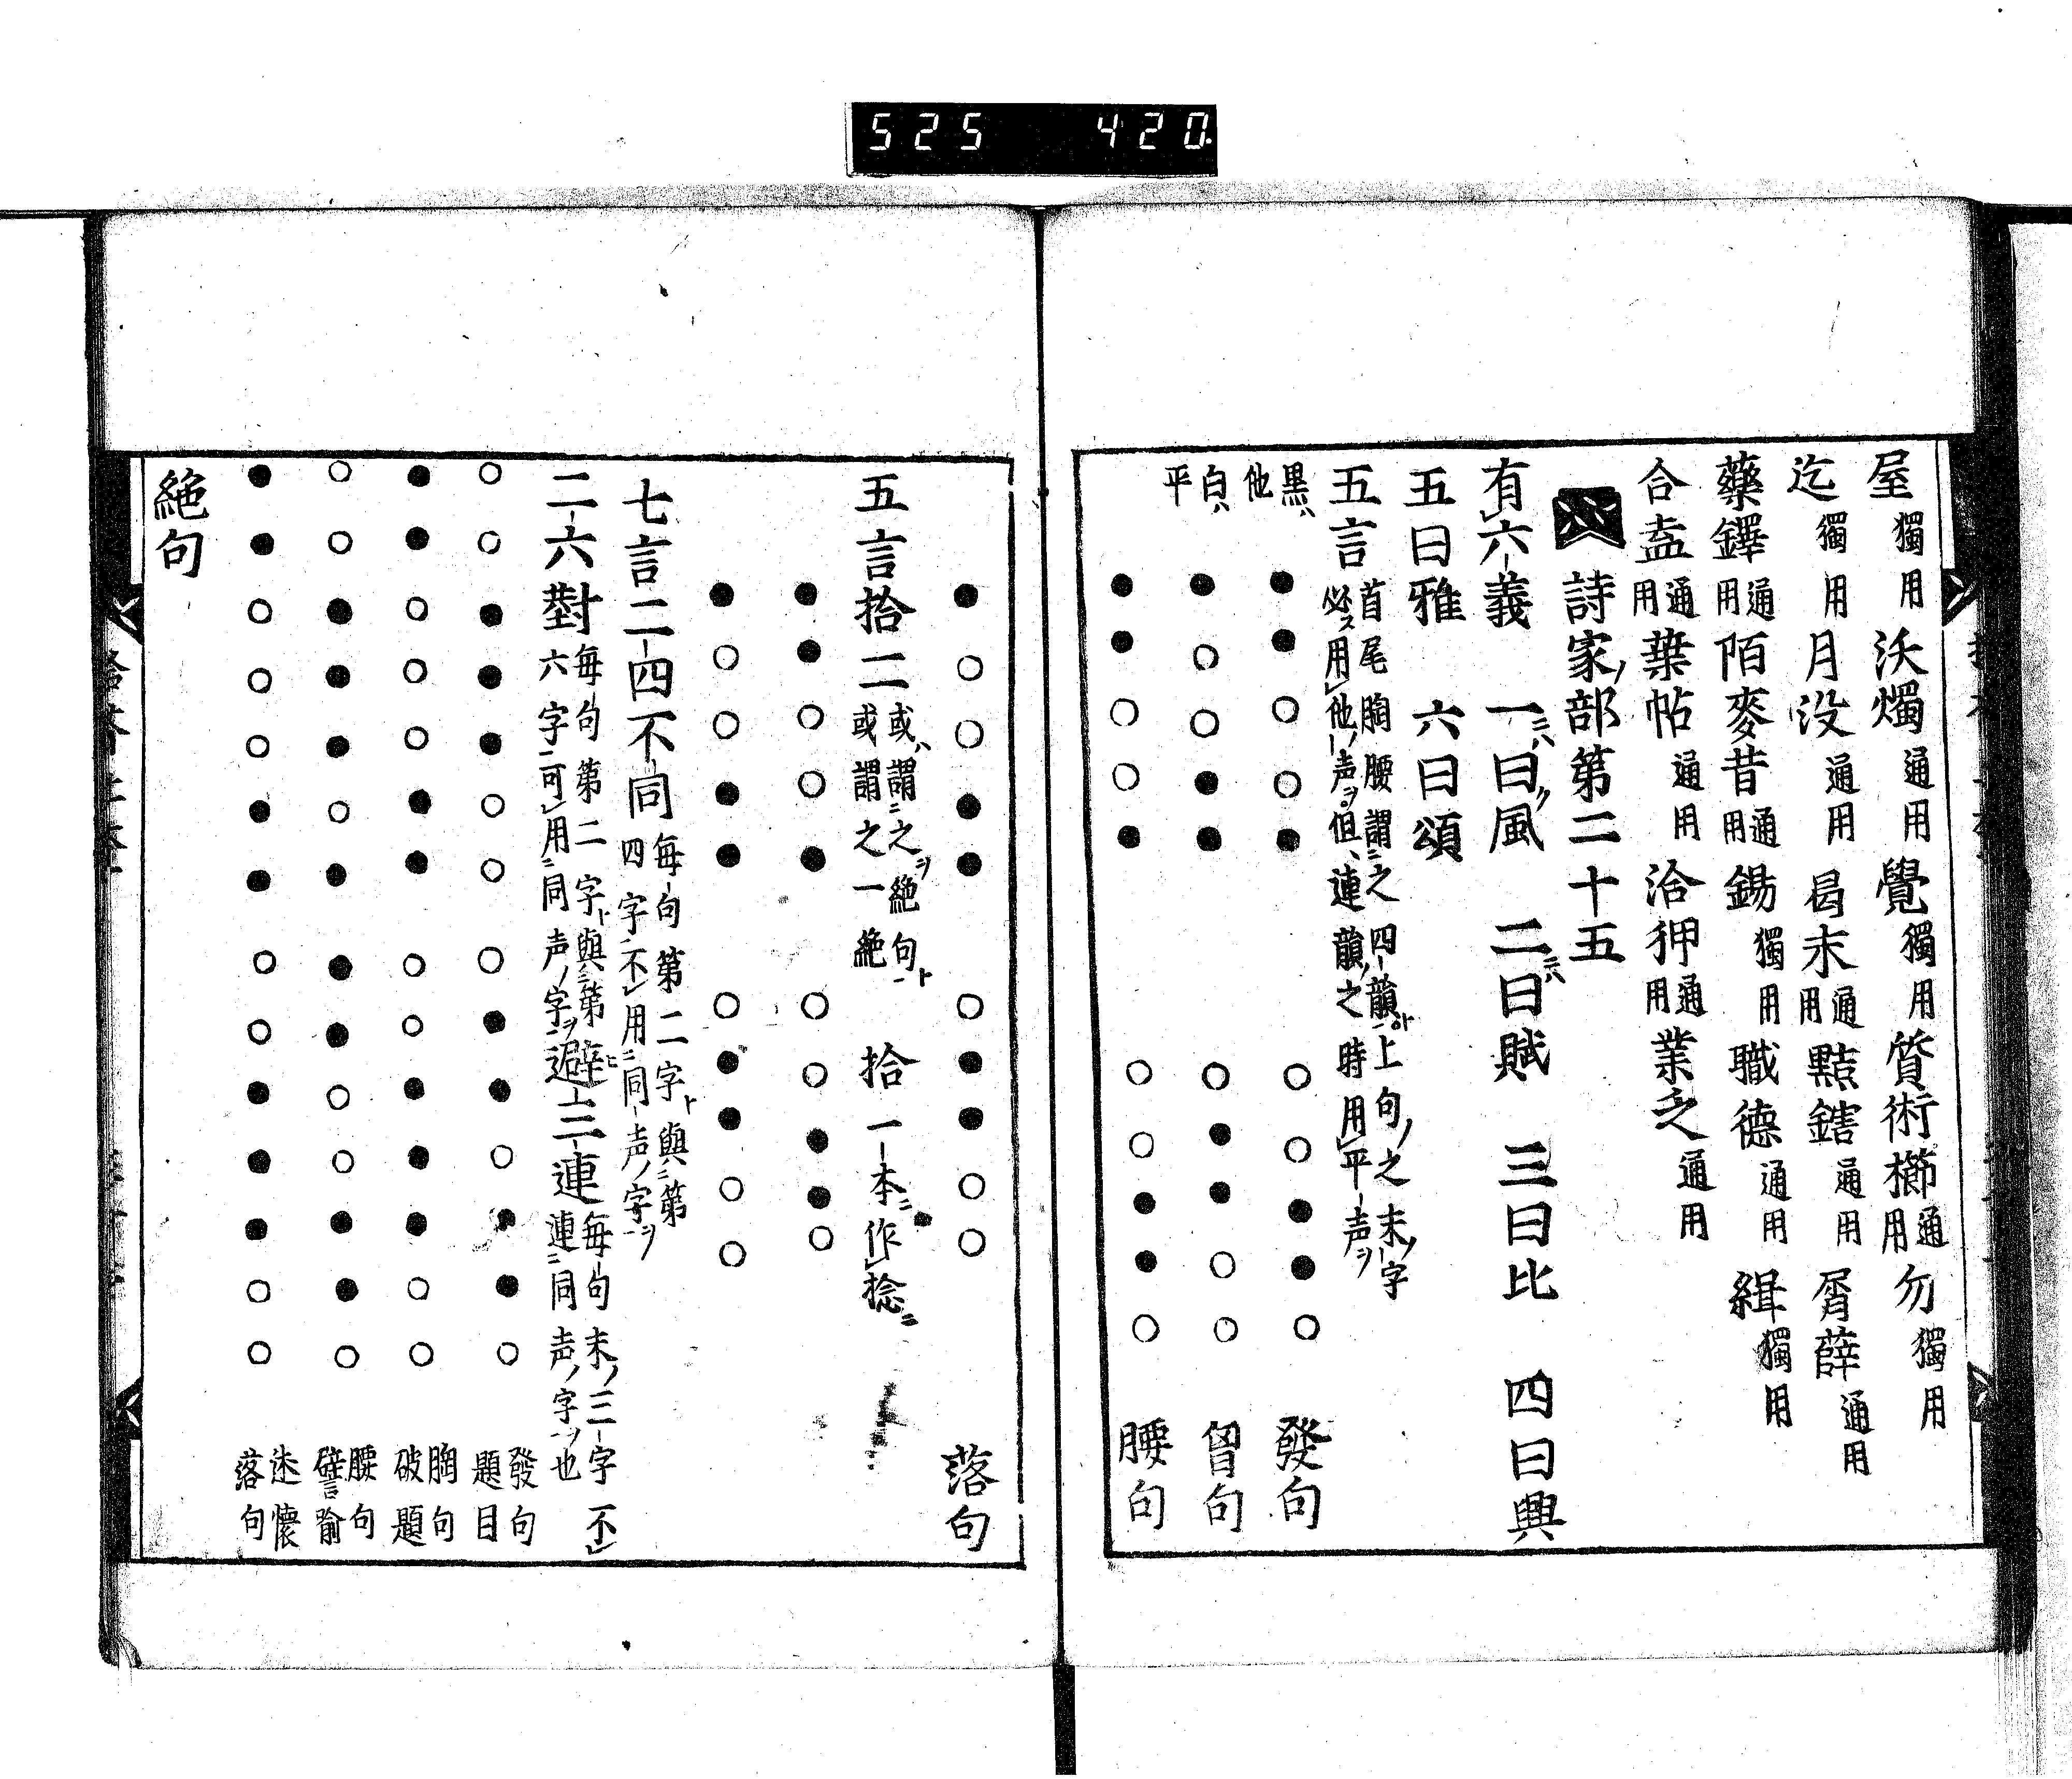 525 420
屋獨用 沃燭通用 覺獨用 質術櫛通用 勿獨用
迄獨用 月没通用 曷末通用 黠鎋通用 屑薛通用
藥鐸通用 陌麥昔通用 錫獨用 職德通用 緝獨用
合盍通用 葉帖通用 洽狎通用 業乏通用
詩家ノ部第二十五
有六義 一ニハ曰ク風 二ニハ曰賦 三曰比 四曰興
五曰雅 六曰頌
五言 首尾胸腰謂之四韻上句ノ之末ノ字
必ス用他声ヲ但連韻ノ之時用平声ヲ
黒ハ他
白ハ平
●●○○● ○○●●○ 發句
●○○●● ○●●○○ 曾句
●●○○● ○○●●○ 腰句
●○○●● ○●●○○ 落句
五言拾二 或ハ謂之ヲ絶句ト 或謂之一絶 拾 一本ニ作捻ニ
●●○○● ○○●●○
●○○●● ○●●○○
七言二四不同 毎句第二字ト與第
四字不用同声ノ字ヲ
二六對 毎句第二字ト與第
六字可用同声ノ字ヲ
避三連 毎句末ノ三字不
連同声ノ字ヲ也
○○●●●○○ ○●●○●●○ 發句 題目
●●○○○●● ○○●●●○○ 胸句 破題
○○●●●○● ●●○○●●○ 腰句 譬喻
●●○○○●● ○○●●●○○ 述懷 落句
絶句